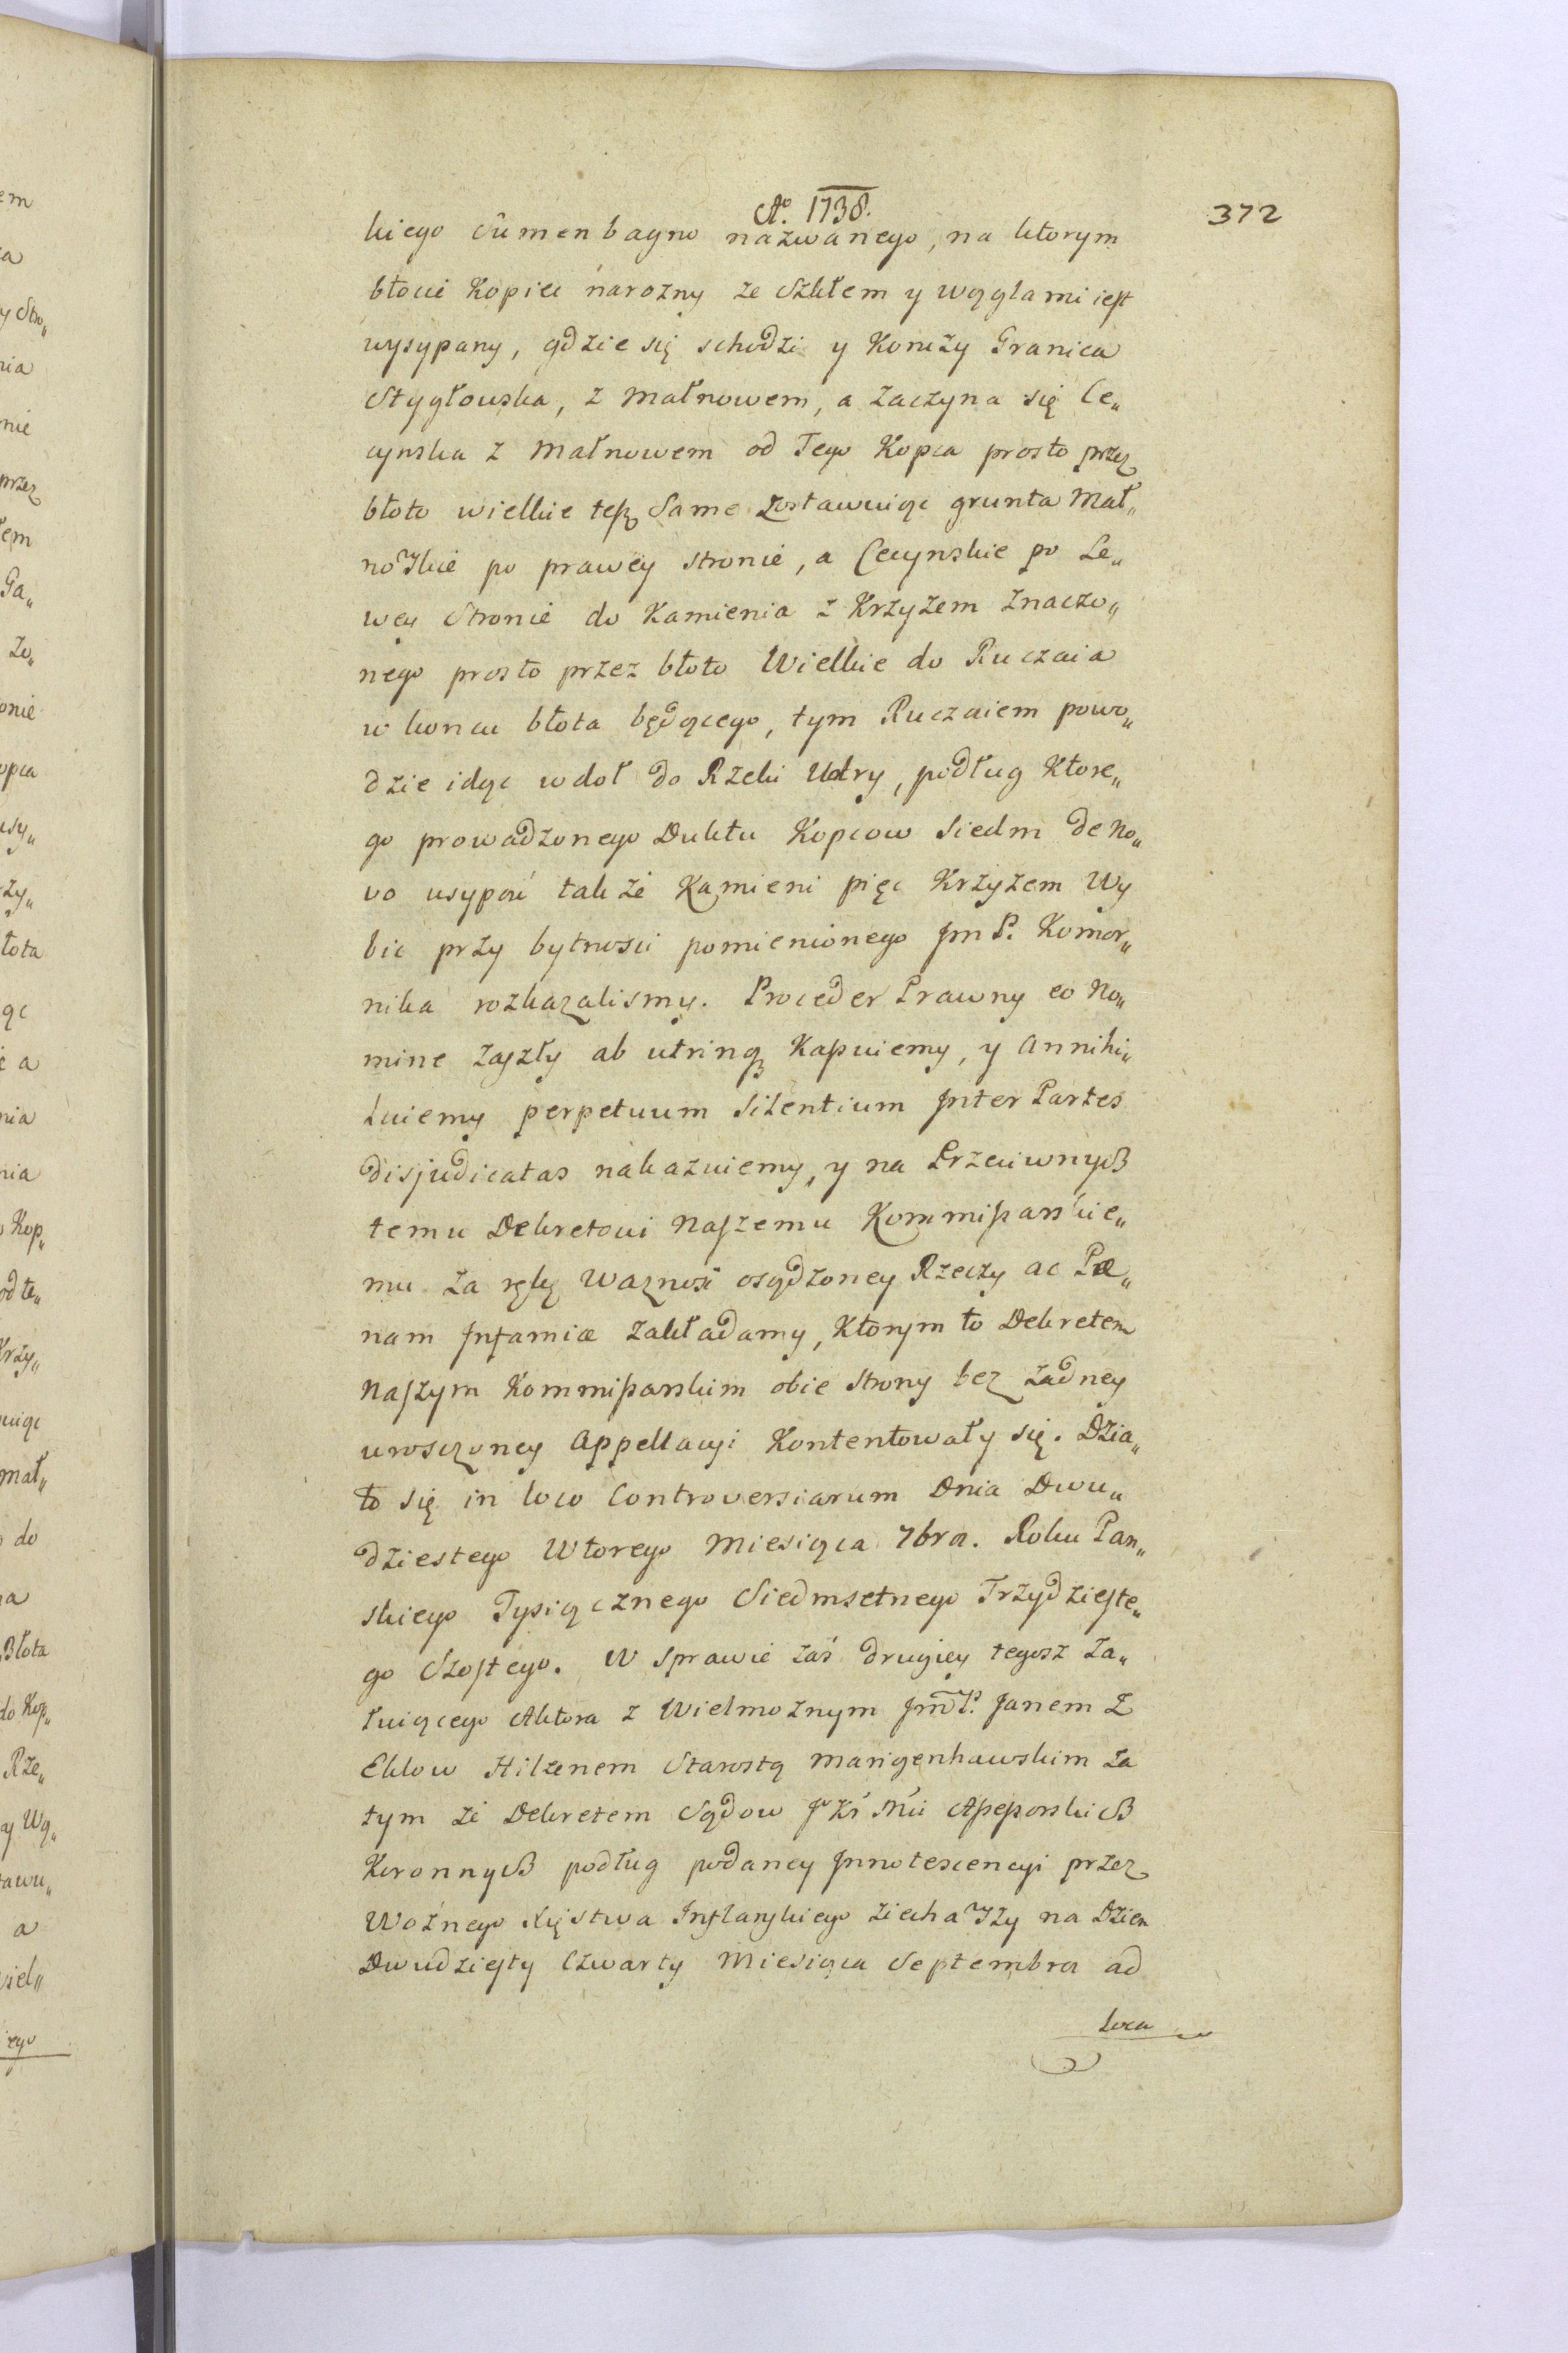 Aº. 1738.
372
kiego Sûmenbagno nazwanego, na ktorym
błocie Kopiec narozny ze Szkłem y węglami iest
wysypany, gdzie się schodzi y Konczy Granica
Stygłowska, z Małnowem, a zaczyna się Ce„
cynska z Małnowem od Tego Kopca prosto przez
błoto wielkie tesz Same zostawuiąc grunta Mał„
nowskie po prawey stronie, a Cecynskie po Le„
wey Stronie do Kamienia z Krzyzem znaczo„
nego prosto przez błoto Wielkie do Ruczaia
w koncu błota będącego, tym Ruczaiem powo„
dzie idąc wdoł do Rzeki Udry, podług Ktore„
go prowadzonego Duktu Kopcow Siedm de No„
vo usypać takze Kamieni pięc Krzyzem Wy
bic przy bytnosci pomienionego Jm P. Komor„
nika rozkazalismy. Proceder Prawny eo No„
mine zaszły ab utrinq Kassuiemy, y Annihi„
luiemy perpetuum Silentium Inter Partes
disjudicatas nakazuiemy, y na Przeciwnych
temu Dekretowi Naszemu Kommissarskie„
mu za rękę Waznosć osądzoney Rzeczy ac Pæ„
nam Infamiæ zakładamy, Ktorym to Dekretem
Naszym Kommissarskim obie Strony bez zadney
urosczoney Appellacyi Kontentowały się. Dzia„
ło się in loco Controversiarum Dnia Dwu„
dziestego Wtorego Miesiąca 7bra. Roku Pan„
skiego Tysiącznego Siedmsetnego Trzydzieste„
go Szostego. W Sprawie zaś drugiey tegosz Za„
łuiącego Aktora z Wielmoznym Jm̃P. Janem Z
Eklow Hilzenem Starostą Marigenhawskim za
tym ze Dekretem Sądow Jº Kr Mci Assessorskich
Koronnych podług podaney Innotescencyi przez
Woźnego Xięstwa Inflanskiego ziechawszy na Dzien
Dwudziesty Czwarty Miesiąca Septembra ad
Loca